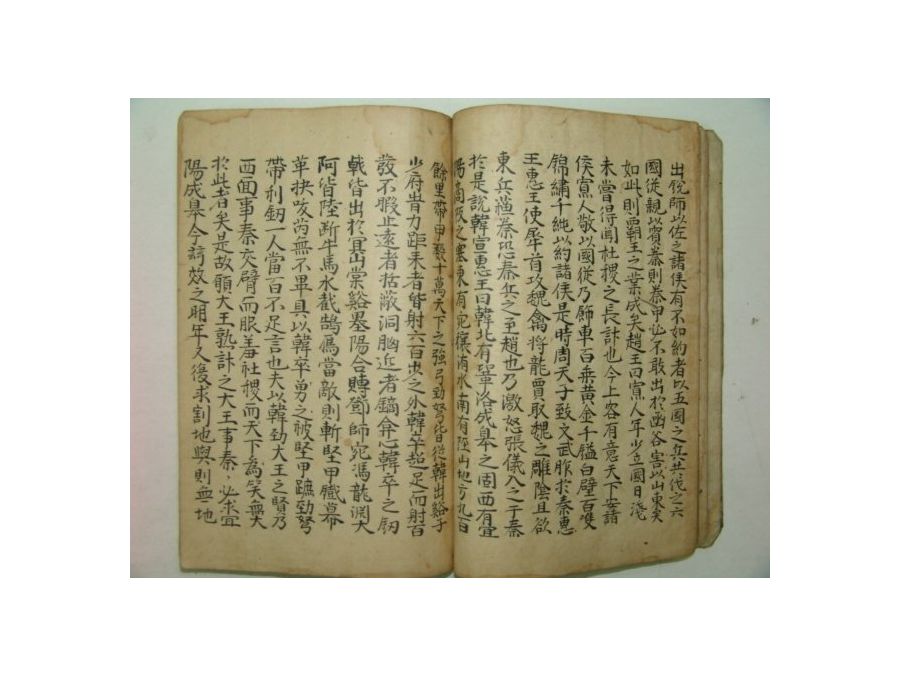 出銳師以佐之諸侯有不如約者以五國之兵共伐之六
國從親以賓秦則秦甲必不敢出於函谷害以山東矣
如此則霸王之業成矣趙王曰寡人年少立國日淺
未嘗得聞社稷之長計也今上客有意天下安諸
侯寡人敬以國從乃飾車百乘黃金千鎰白璧百雙
錦繡千純以約諸侯是時周天子致文武胙於秦惠
王惠王使犀首攻魏禽將龍賈取魏之雕陰且欲
東兵蘇秦恐秦兵之至趙也乃激怒張儀入之于秦
於是說韓宣惠王曰韓北有鞏洛成皋之固西有宜
陽商阪之塞東有宛穰洧水南有陘山地方九百
餘里帶甲數十萬天下之強弓勁弩皆從韓出谿子
少府時力距來者皆射六百步之外韓卒超足而射百
發不暇止遠者括蔽洞胸近者鏑弇心韓卒之劒
戟皆出於冥山棠谿墨陽合賻鄧師宛馮龍淵大
阿皆陸斷牛馬水截鵠鴈當敵則斬堅甲鐵幕
革抉㕹芮無不畢具以韓卒勇之被堅甲蹠勁弩
帶利劒一人當百不足言也夫以韓勁大王之賢乃
西面事秦交臂而服羞社稷而天下爲笑無大
於此者矣是故願大王熟計之大王事秦必求宜
陽成皋今玆效之明年又後求割地與則無地